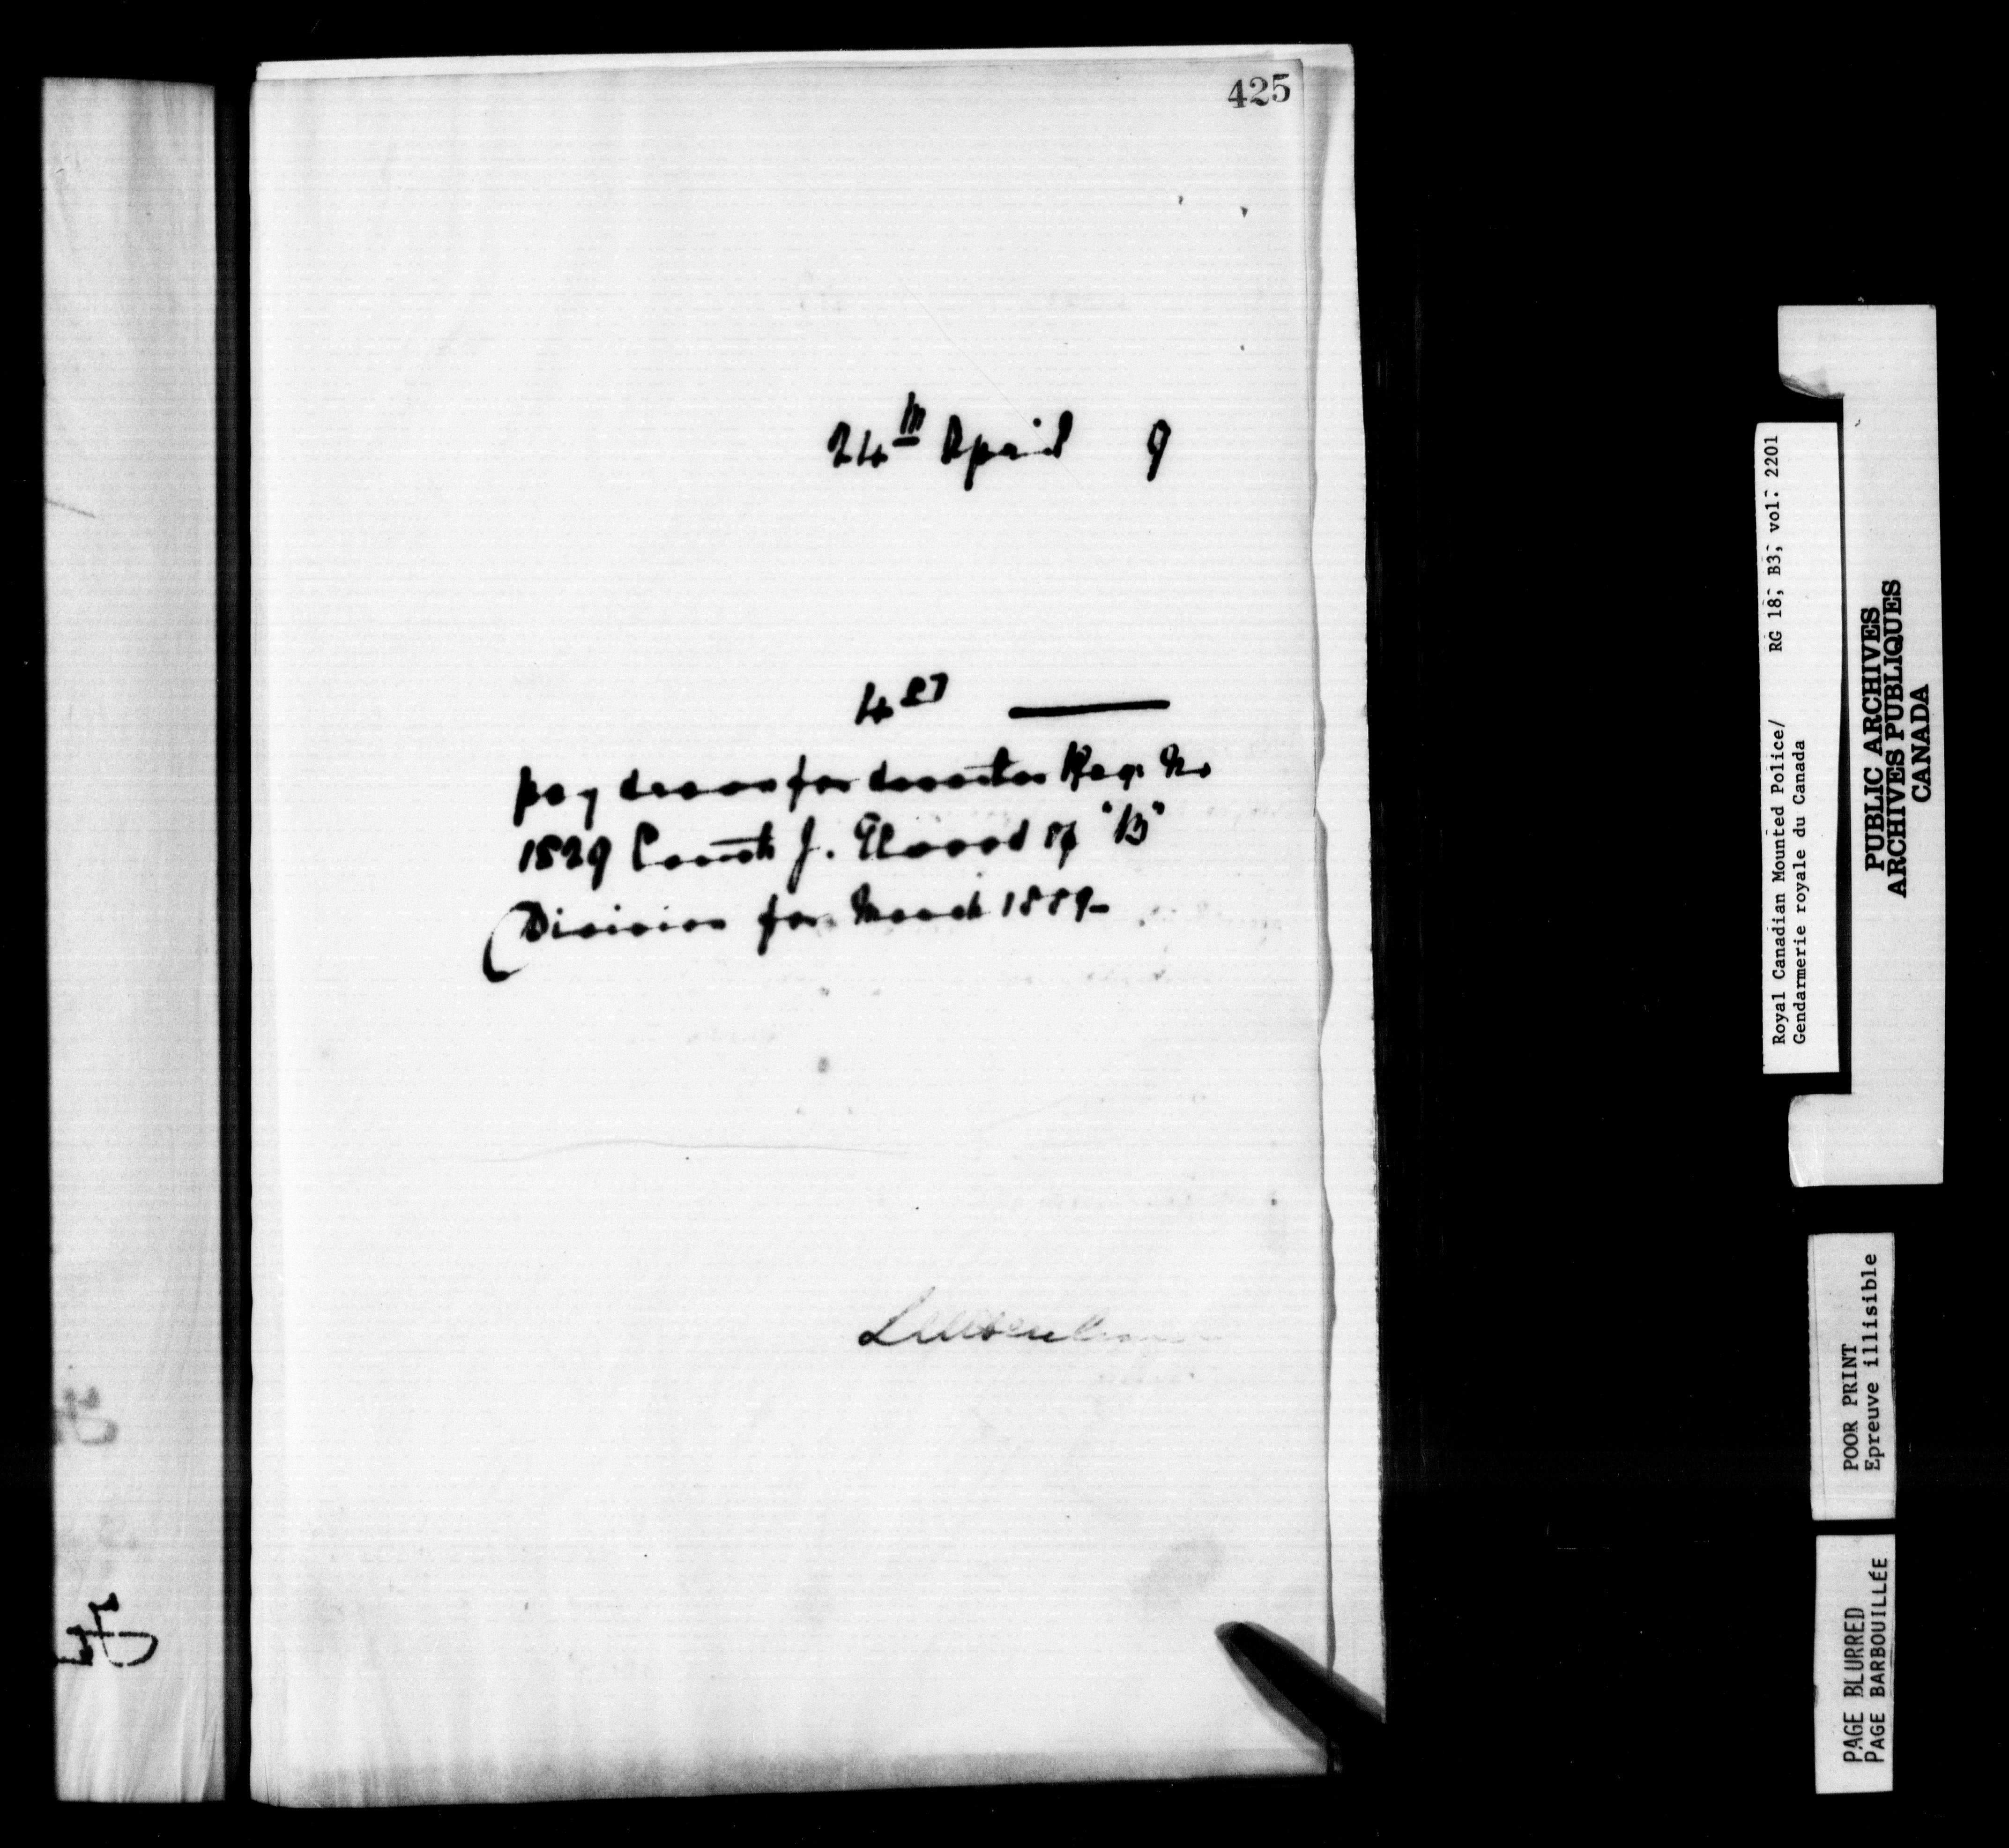 425
24th April 9
4 87
pay drawn for deserter Reg. No
1829 Const J. Elwood of "B"
Division for March 1889-
Royal Canadian Mounted Police/ RG 18, B3, vol. 2201
Gendarmerie royale du Canada
PUBLIC ARCHIVES
ARCHIVES PUBLIQUES
CANADA
POOR PRINT
Epreuve illisible
PAGE BLURRED
PAGE BARBOUILLÉE